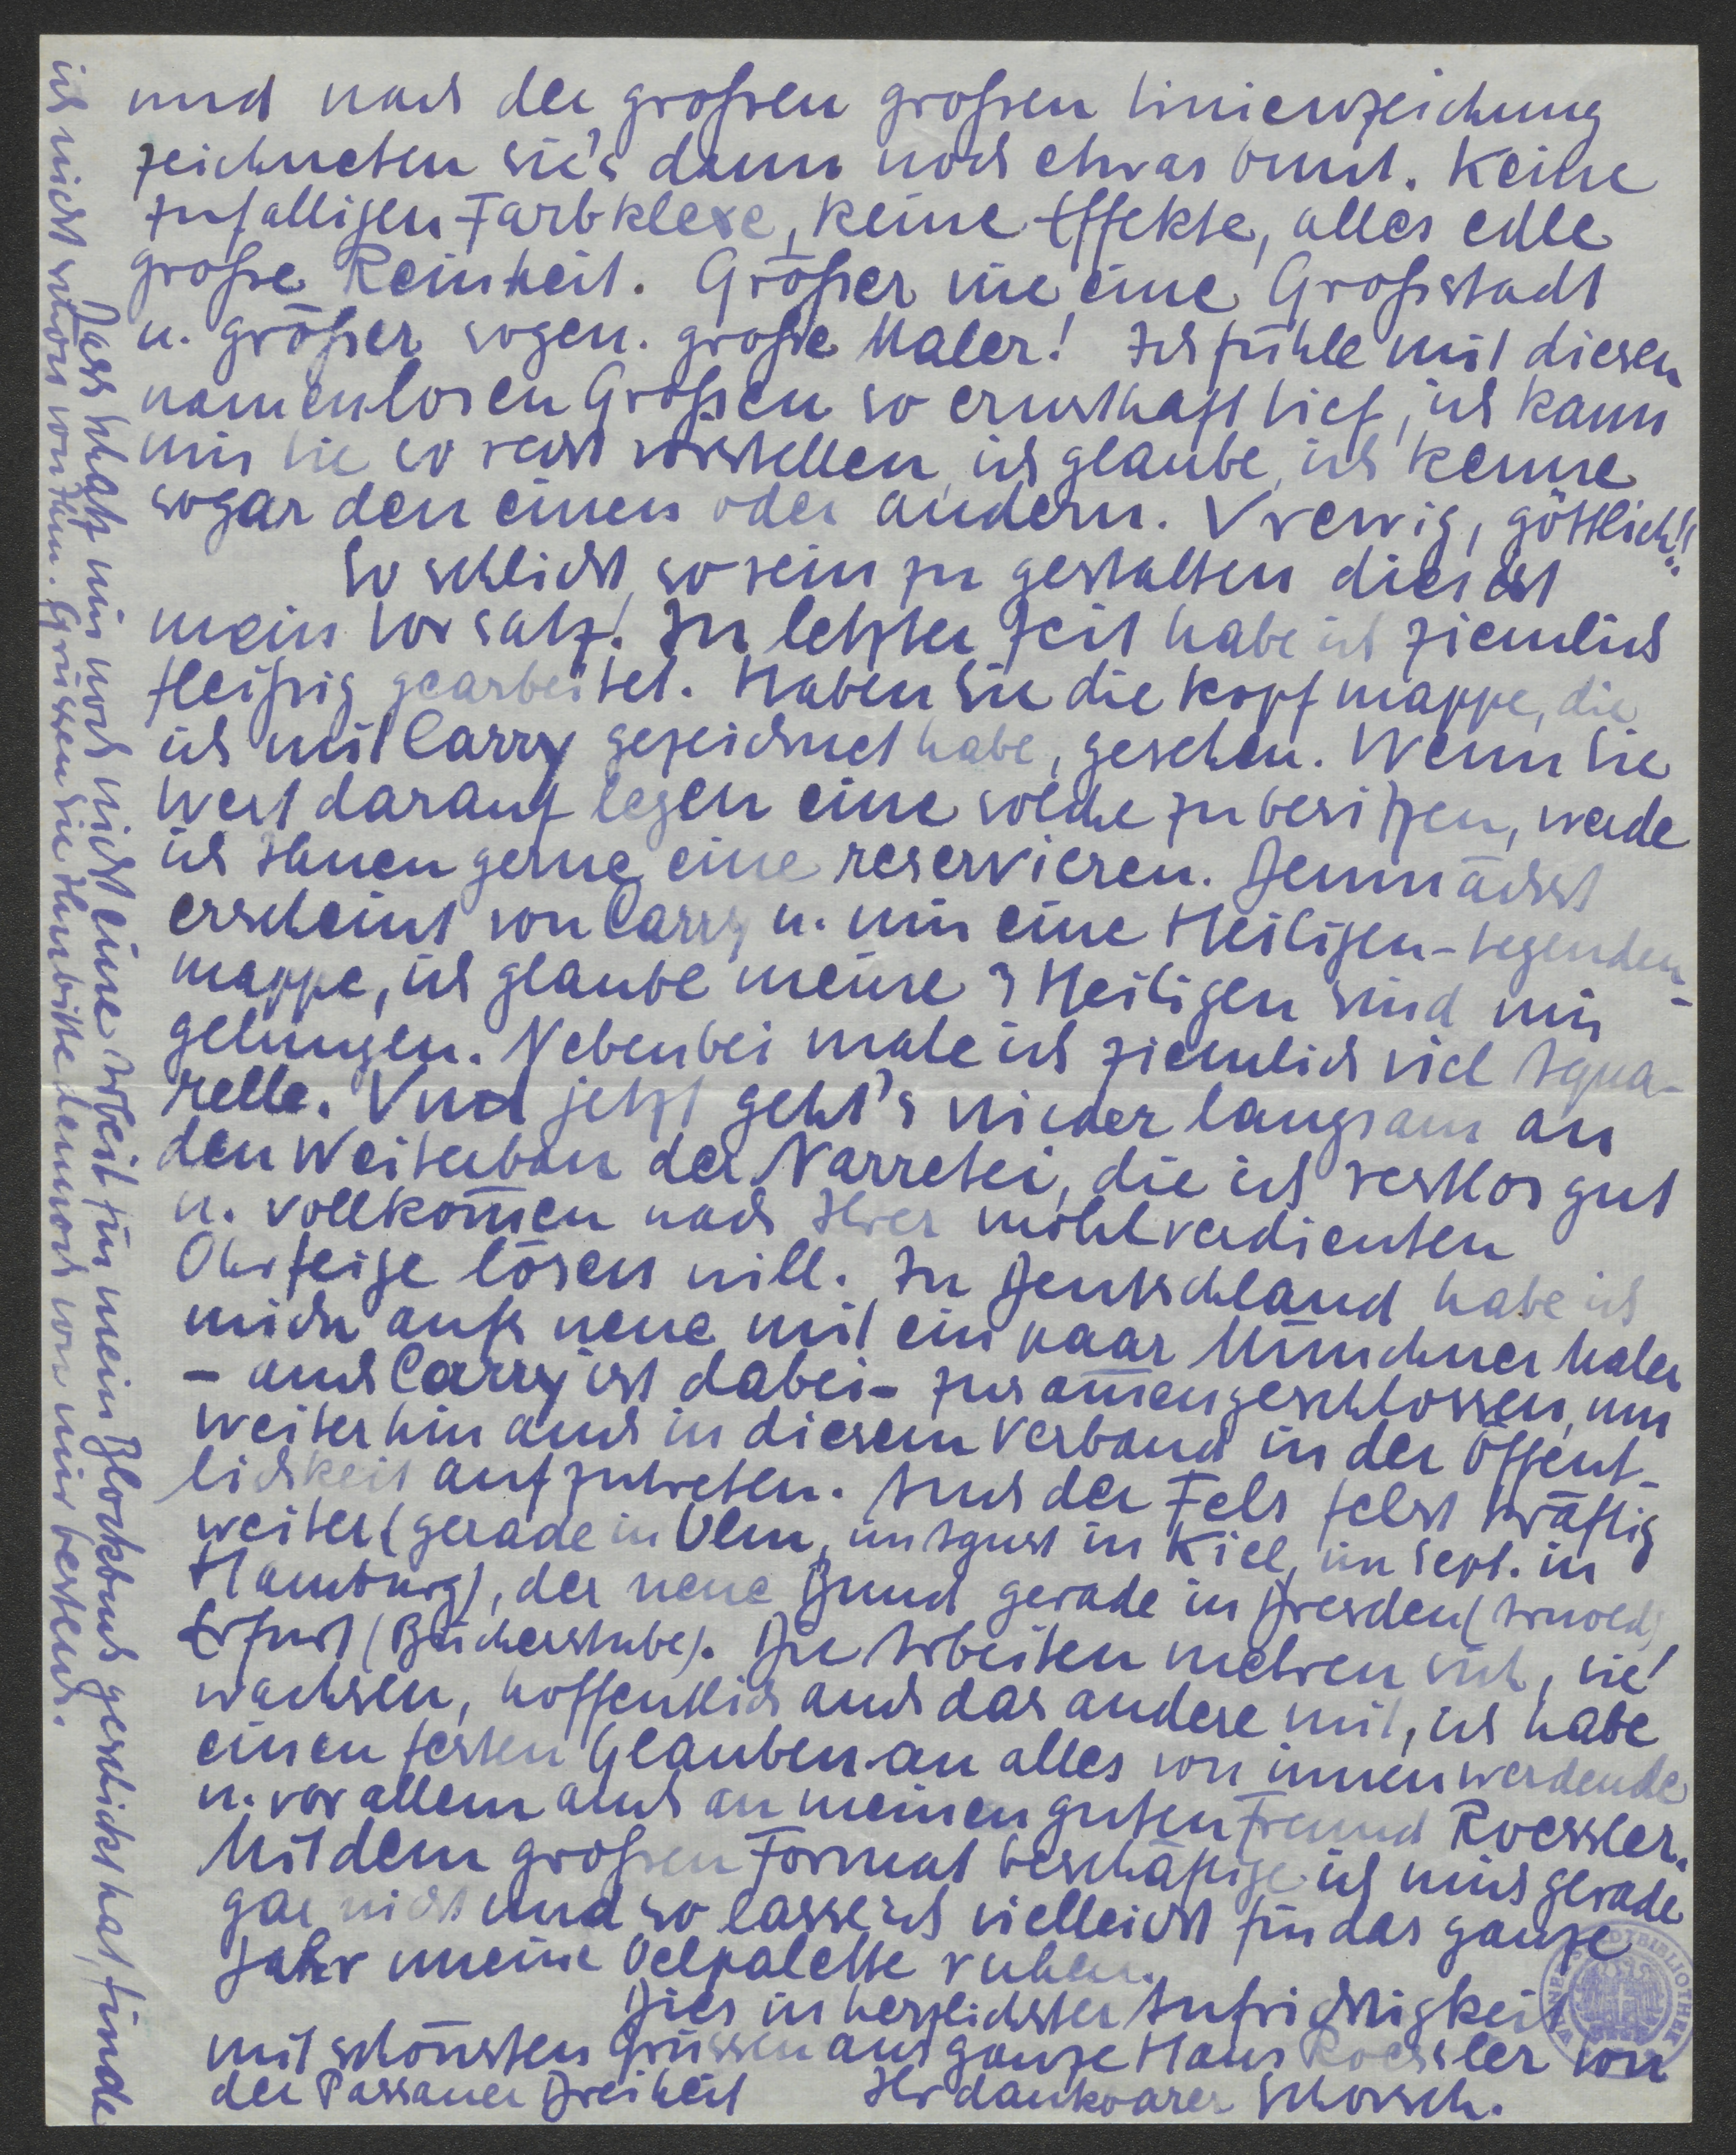 und nach der großen großen Linienzeichnung
zeichneten sie's dann noch etwas bunt. Keine
zufälligen Farbklexe, keine Effekte, alles edle
große Reinheit. Größer wie eine Großstadt
u. größer sogen. große Maler! Ich fühle mit diesen
namenlosen Großen so ernsthaft tief, ich kann
mir sie so recht vorstellen, ich glaube, ich kenne
sogar den einen oder andern. Vrewig, göttlich!!
So schlicht, so rein zu gestalten dies ist
mein Vorsatz. In letzter Zeit habe ich ziemlich
fleißig gearbeitet. Haben Sie die Kopfmappe, die
ich mit Carry gezeichnet habe, gesehen. Wenn Sie
Wert darauf legen eine solche zu besitzen, werde
ich Ihnen gerne eine reservieren. Demnächst
erscheint von Carry u. mir eine Heiligen-Legenden-
mappe, ich glaube meine 3 Heiligen sind mir
gelungen. Nebenbei male ich ziemlich viel Aqua-
relle. Vnd jetzt geht's wieder langsam an
den Weiterbau der Narretei, die ich restlos gut
u. vollkom̄en nach Ihrer wohlverdienten
Ohrfeige lösen will. In Deutschland habe ich
mich aufs neue mit ein paar Münchner Maler
- auch Carry ist dabei - zusam̄engeschlossen, um
weiterhin auch in diesem Verband in der Öffent-
lichkeit aufzutreten. Auch der Fels felst kräftig
weiter (gerade in Ulm, im Agust in Kiel, im Sept. in
Hamburg), der neue Bund gerade in Dresden (Arnold)
Erfurt (Bücherstube). Die Arbeiten mehren sich, sie
wachsen, hoffentlich auch das andere mit, ich habe
einen festen Glauben an alles von innen werdende
u. vor allem auch an meinen guten Freund Roessler.
Mit dem großen Format beschäftige ich mich gerade
gar nicht und so lasse ich vielleicht für das ganze
Jahr meine Oelpalette ruhen.
Dies in herzlichster Aufrichtigkeit
mit schönsten Grüssen ans ganze Haus Roessler von
der Passauer Dreiheit Ihr dankbarer Schorsch.
Dass Hhatz mir noch nicht eine Arbeit für mein Blockbuch geschickt hat, finde
ich nicht schön von ihm. Grüssen Sie Ihn bitte dennoch von mir bestens.
WIENER STADTBIBLIOTHEK